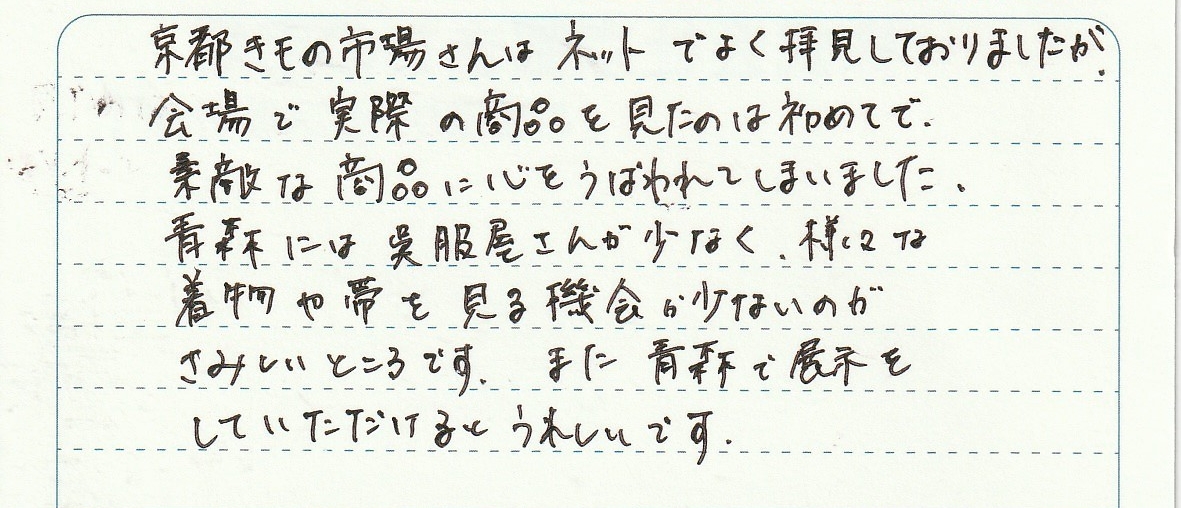 京都きもの市場さんは ネットでよく拝見しておりましたが、
会場で実際の商品を見たのは初めてで、
素敵な商品に心をうばわれてしまいました。
青森には呉服屋さんが少なく、様々な
着物や帯を見る機会が少ないのが
さみしいところです。また青森で展示を
していただけるとうれしいです。